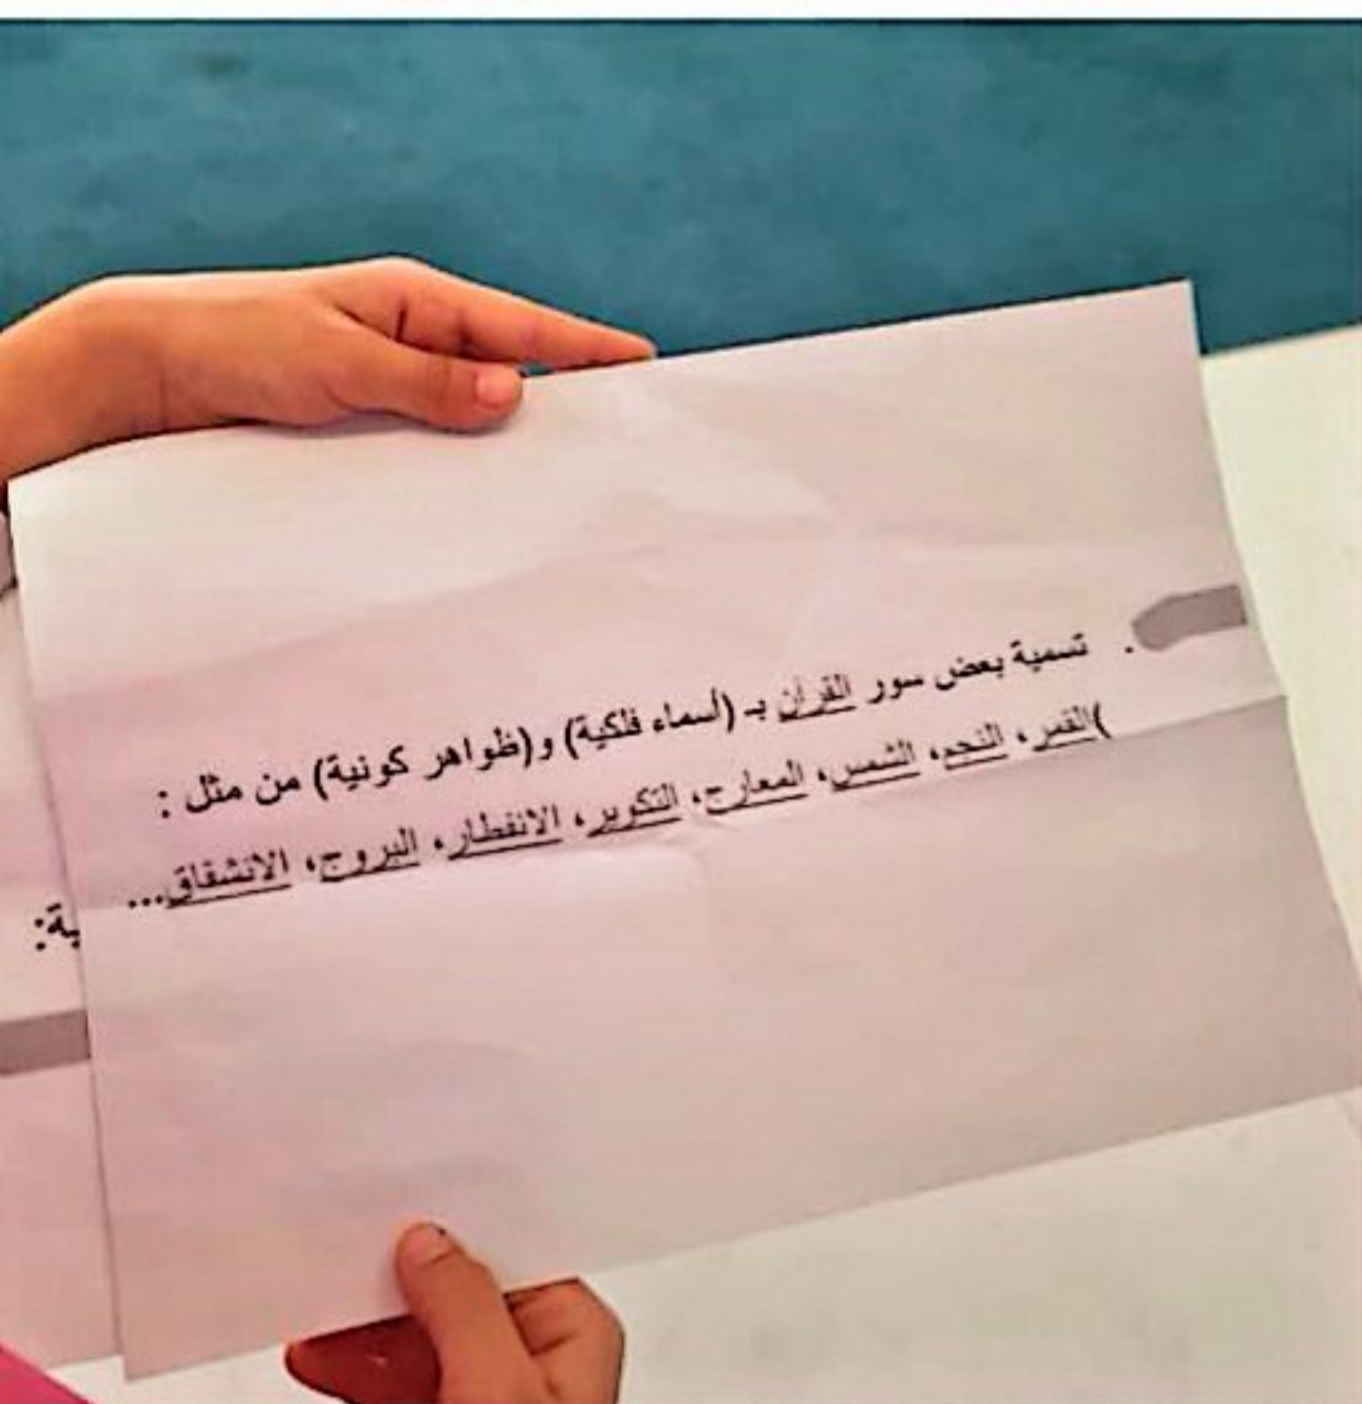 . تسمية بعض سور القرآن بـ (أسماء فلكية) و(ظواهر كونية) من مثل :
)القمر، النجم، الشمس، المعارج، التكوير، الانفطار، البروج، الانشقاق...
ية: